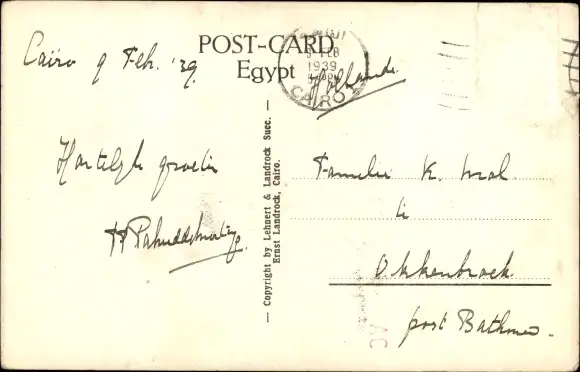 POST-CARD
Egypt
Cairo 9 Feb. '39
9 FEB
1939
CAIRO
Hollande.
Hartelijk groeten
— Copyright by Lehnert & Landrock Succ. —
Ernst Landrock, Cairo.
Familie K. Mol
te
Okkenbroek
post Bathmen.